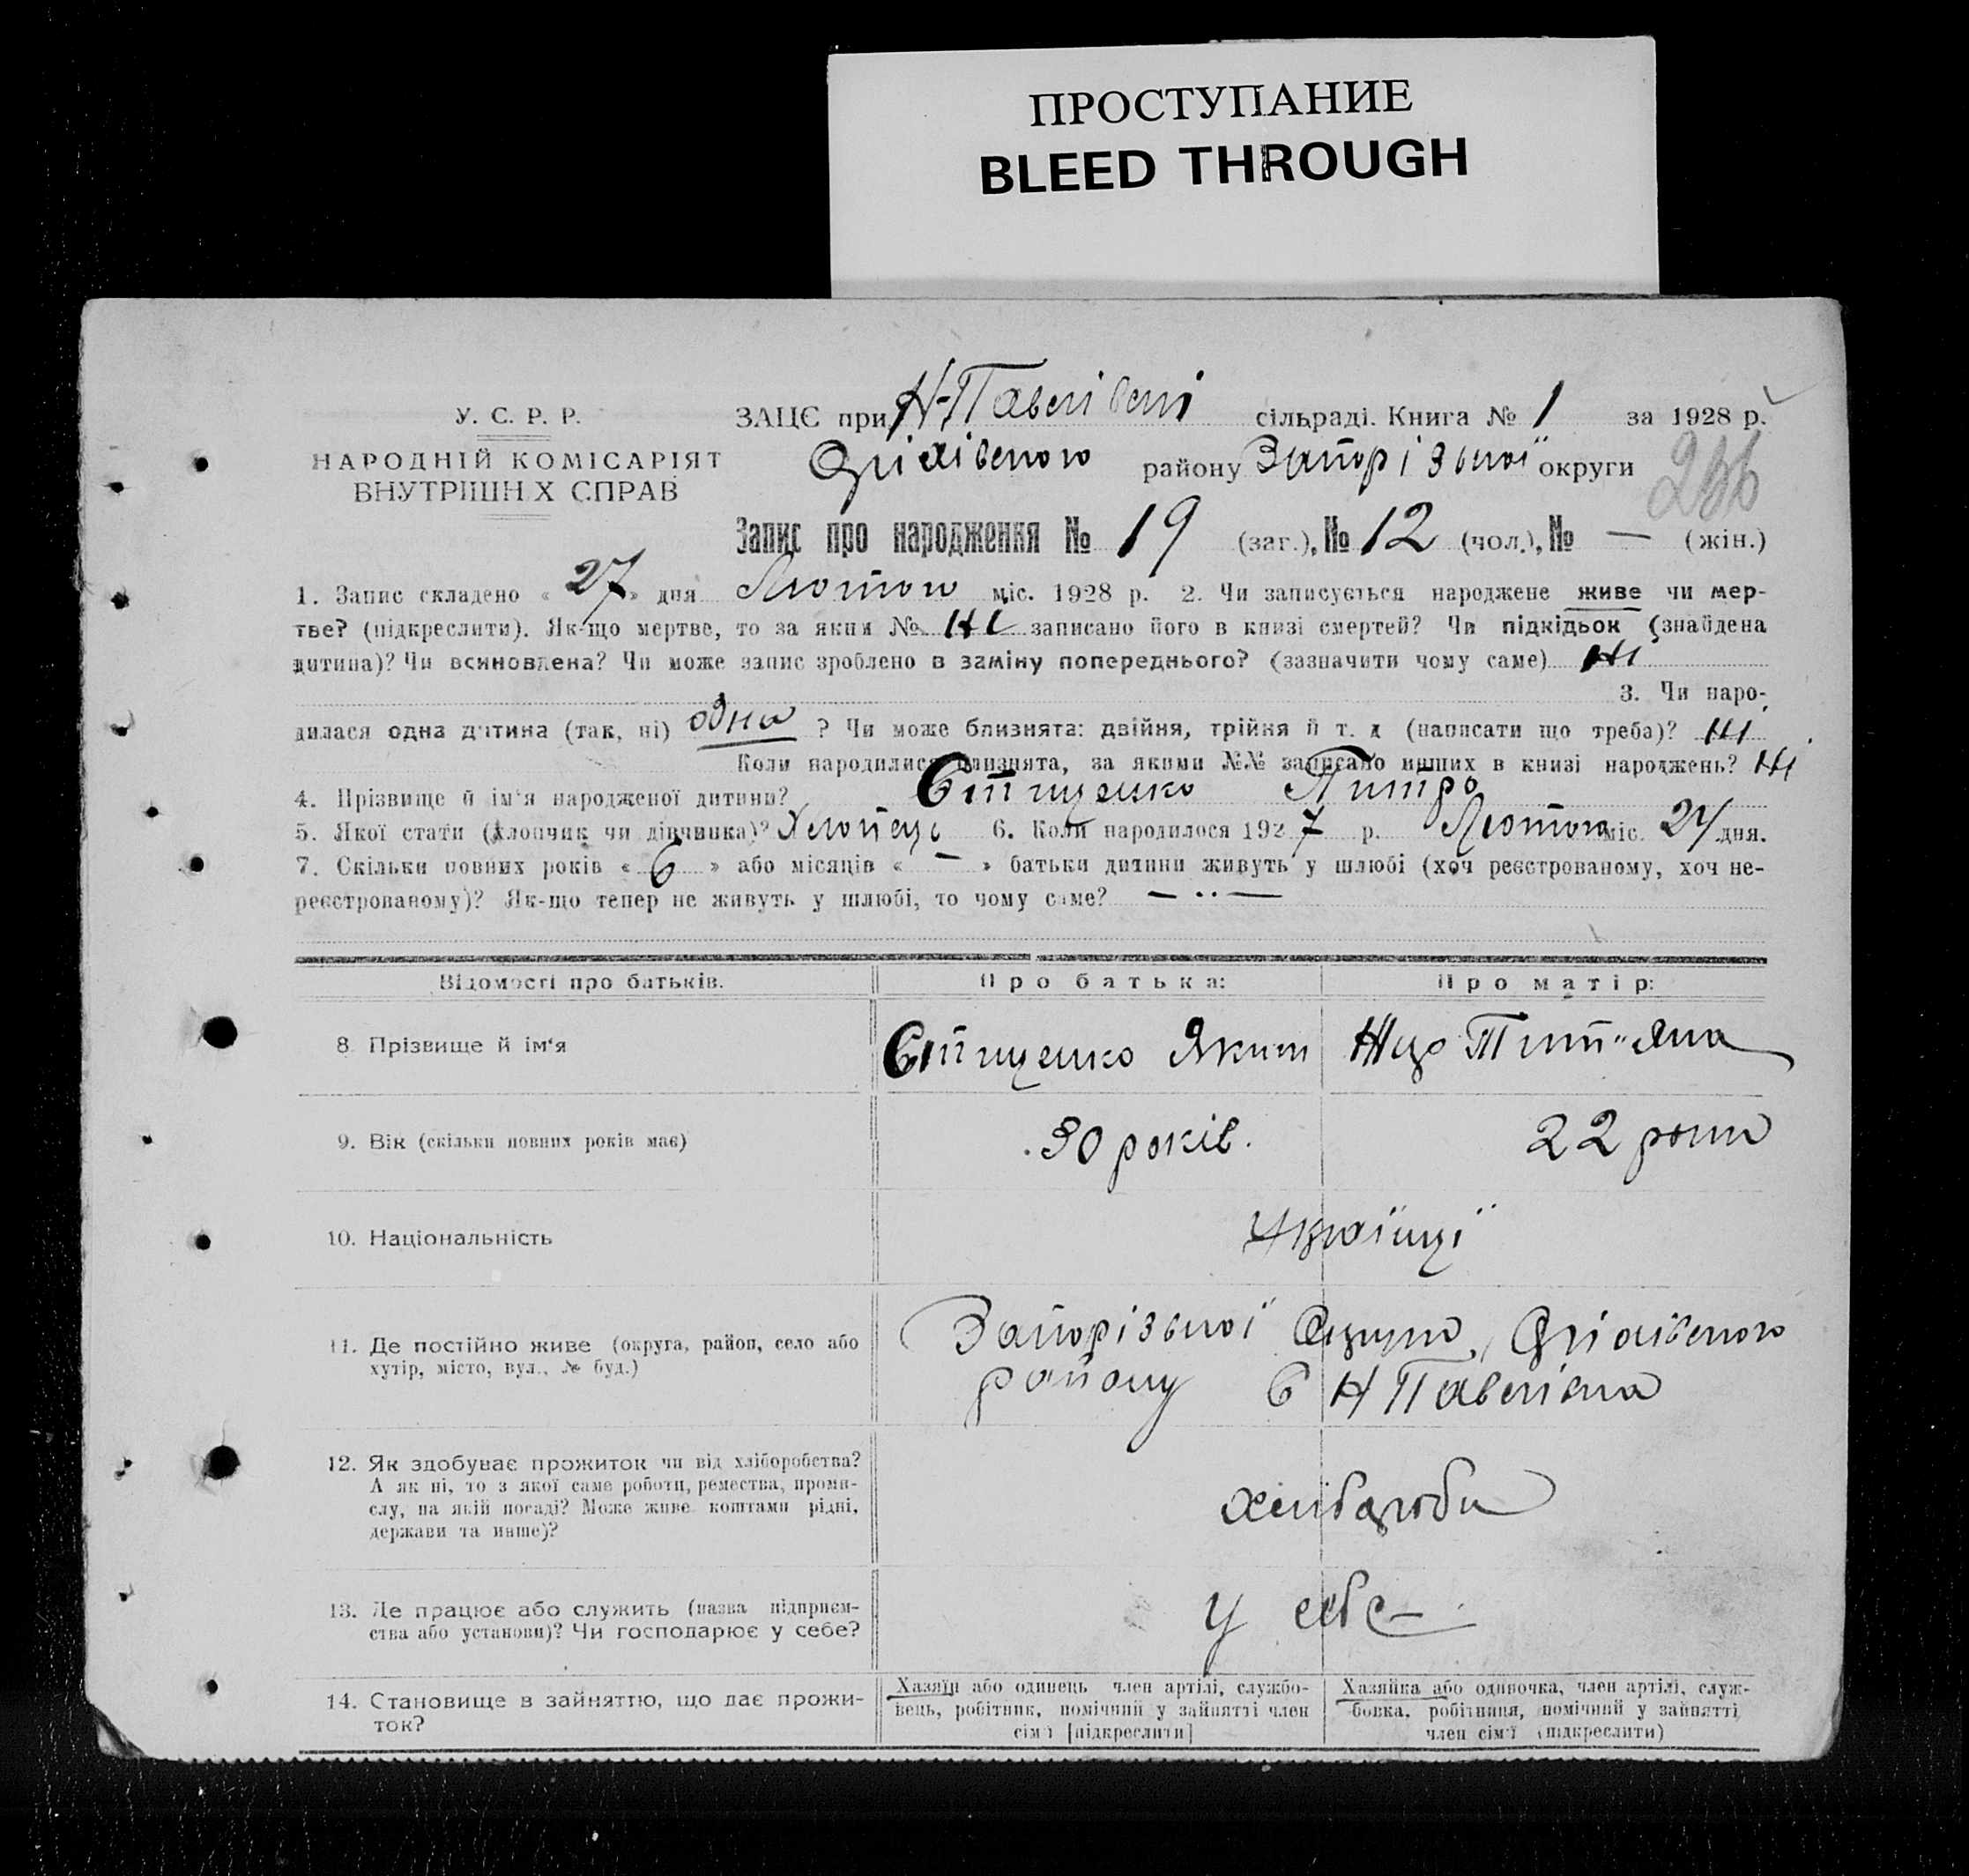 ПРОСТУПАНИЕ
BLEED THROUGH
У. С. Р. Р.
НАРОДНІЙ КОМІСАРІЯТ
ВНУТРІШН Х СПРАВ
ЗАЦС при Н-Павлівскі сільраді. Книга № 1 за 1928 р.
Оріхівского району Запорізької округи
Запис про народження № 19 (заг.), № 12 (чол.), № — (жін.)
1. Запис складено « 27 » дня Лютого міс. 1928 р. 2. Чи записується народжене живе чи мер-
тве? (підкреслити). Як-що мертве, то за яким № Ні записано його в книзі смертей? Чи підкідьок (знайдена
дитина)? Чи всиновлена? Чи може запис зроблено в заміну попереднього? (зазначити чому саме) Ні
3. Чи наро-
дилася одна дитина (так, ні) одна ? Чи може близнята: двійня, трійня й т. д (написати що треба)? Ні
Коли народилися близнята, за якими №№ записано инших в книзі народжень? Ні
4. Прізвище й ім'я народженої дитини? Єтіщенко Питро
5. Якої стати (хлопчик чи дівчинка)? Хлопець 6. Коли народилося 192 7 р. Лютого міс. дня.
7. Скільки повних років « 6 » або місяців « — » батьки дитини живуть у шлюбі (хоч реєстрованому, хоч не-
реєстрованому)? Як-що тепер не живуть у шлюбі, то чому саме? — ·· —
Відомості про батьків.
Про батька:
Про матір:
8 Прізвище й ім'я
Яким
9. Вік (скільки повних років має)
30 років.
22 роки
10. Національність
Українці
11. Де постійно живе (округа, район, село або
хутір, місто, вул., № буд.)
Запорізької Округи, Оріхівского
району С Н Павлівка
12. Як здобуває прожиток чи від хліборобства?
А як ні, то з якої саме роботи, ремества, проми-
слу, на якій посаді? Може живе коштами рідні,
держави та инше)?
хліборобси
13. Де працює або служить (назва підприєм-
ства або установи)? Чи господарює у себе?
У себе —
14. Становище в зайняттю, що дає прожи-
ток?
Хазяїн або одинець член артілі, службо-
вець, робітник, помічний у зайнятті член
сім'ї [підкреслити]
Хазяйка або одиночка, член артілі, служ-
бовка, робітниця, помічний у зайнятті
член сім'ї (підкреслити)